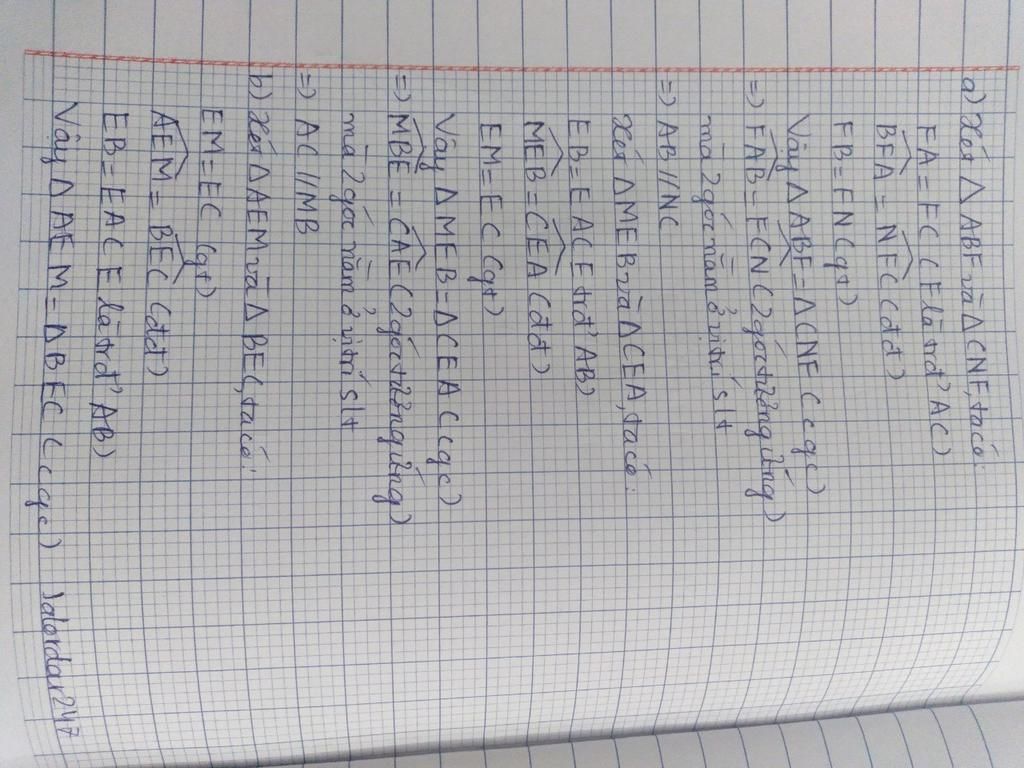 a) Xét △ABF và △CNF, ta có:
FA = FC (F là trđ' AC)
BFA = NFC (đđ)
FB = FN (gt)
Vậy △ABF = △CNF (cgc)
=> FAB = FCN (2 góc tương ứng)
mà 2 góc nằm ở vị trí slt
=> AB // NC
Xét △MEB và △CEA, ta có:
EB = EA (E trđ' AB)
MEB = CEA (đđ)
EM = EC (gt)
Vậy △MEB = △CEA (cgc)
=> MBE = CAE (2 góc tương ứng)
mà 2 góc nằm ở vị trí slt
=> AC // MB
b) Xét △AEM và △BEC, ta có:
EM = EC (gt)
AEM = BEC (đđ)
EB = EA (E là trđ' AB)
Vậy △AEM = △BEC (cgc) Jalordar247